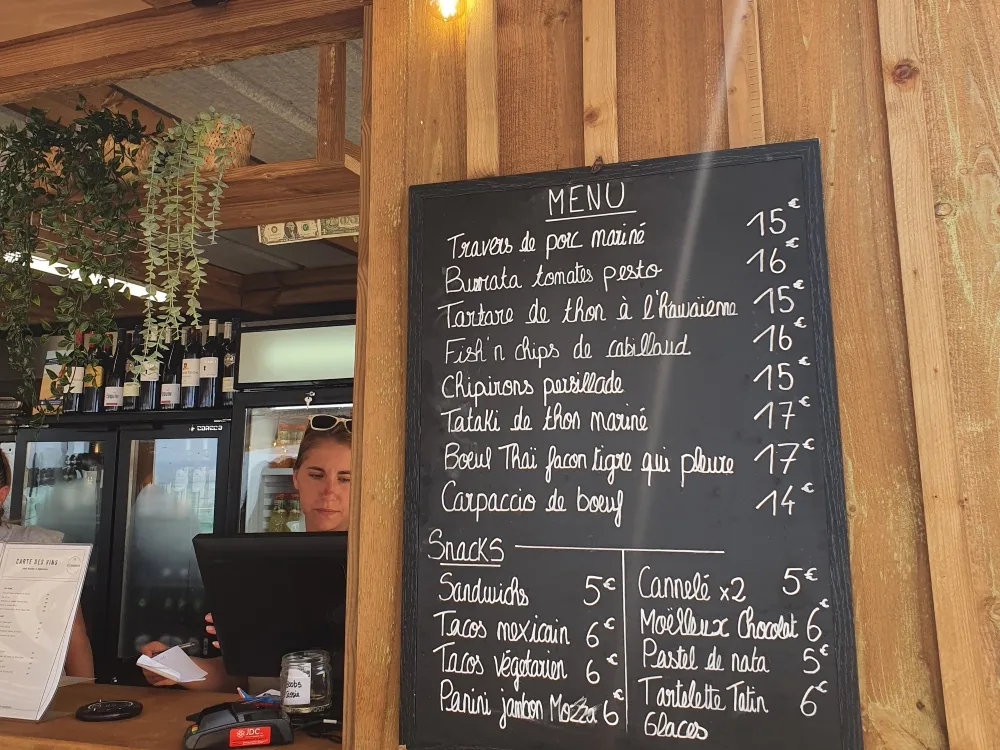 MENU
Travers de porc mariné 15€
Burrata tomates pesto 16€
Tartare de thon à l'hawaïenne 15€
Fish'n chips de cabillaud 16€
Chipirons persillade 15€
Tataki de thon mariné 17€
Boeuf Thaï facon tigre qui pleure 17€
Carpaccio de boeuf 14€
Snacks
Sandwichs 5€
Tacos mexicain 6€
Tacos végétarien 6€
Panini jambon Mozza 6€
Cannelé x2 5€
Moëlleux Chocolat 6€
Pastel de nata 5€
Tartelette Tatin 6€
Glaces
CARTE DES VINS
JDC